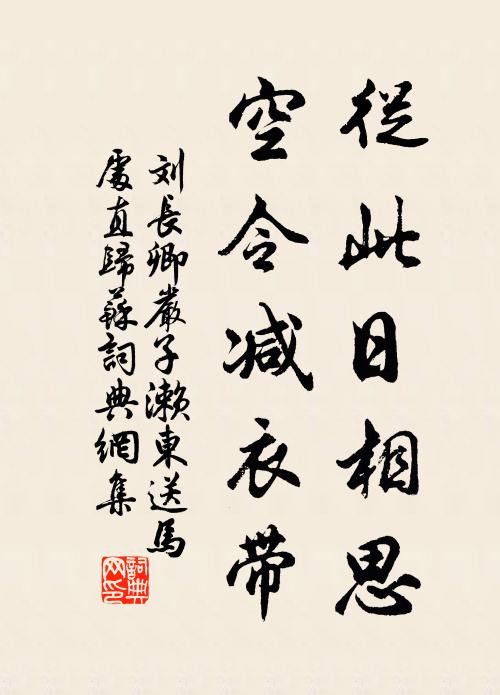 從此日相思
空令減衣帶
刘長卿嚴子瀨東送馬
處直歸蘇詞典網集
詞典
网印